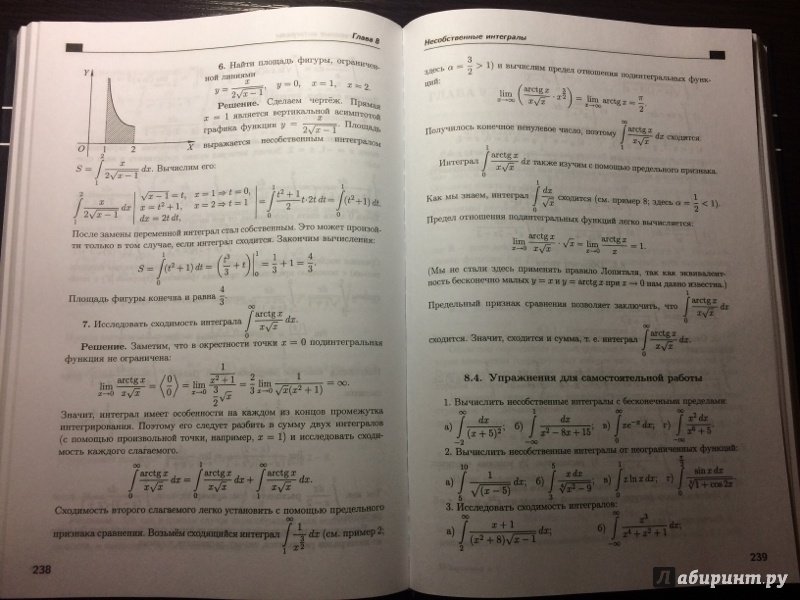 Глава 8
6. Найти площадь фигуры, ограничен-
ной линиями
y = x/(2√(x−1)), y = 0, x = 1, x = 2.
Решение. Сделаем чертёж. Прямая
x = 1 является вертикальной асимптотой
графика функции y = x/(2√(x−1)). Площадь
выражается несобственным интегралом
Y
O 1 2 X
S = ∫₁² x/(2√(x−1)) dx. Вычислим его:
∫₁² x/(2√(x−1)) dx | √(x−1) = t, x = 1 ⇒ t = 0, x = t² + 1, x = 2 ⇒ t = 1 dx = 2t dt, | = ∫₀¹ (t²+1)/2 · 2t dt = ∫₀¹ (t²+1) dt.
После замены переменной интеграл стал собственным. Это может произой-
ти только в том случае, если интеграл сходится. Закончим вычисления:
S = ∫₀¹ (t²+1) dt = (t³/3 + t)|₀¹ = 1/3 + 1 = 4/3.
Площадь фигуры конечна и равна 4/3.
7. Исследовать сходимость интеграла ∫₀^∞ arctg x/(x√x) dx.
Решение. Заметим, что в окрестности точки x = 0 подинтегральная
функция не ограничена:
lim x→0 arctg x/(x√x) = ⟨0/0⟩ = lim x→0 (1/(x²+1))/((3/2)√x) = 2/3 lim x→0 1/(√x(x²+1)) = ∞.
Значит, интеграл имеет особенности на каждом из концов промежутка
интегрирования. Поэтому его следует разбить в сумму двух интегралов
(с помощью произвольной точки, например, x = 1) и исследовать сходи-
мость каждого слагаемого.
∫₀^∞ arctg x/(x√x) dx = ∫₀¹ arctg x/(x√x) dx + ∫₁^∞ arctg x/(x√x) dx.
Сходимость второго слагаемого легко установить с помощью предельного
признака сравнения. Возьмём сходящийся интеграл ∫₁^∞ 1/x^(3/2) dx (см. пример 2;
238
Несобственные интегралы
здесь α = 3/2 > 1) и вычислим предел отношения подинтегральных функ-
ций:
lim x→∞ (arctg x/(x√x) · x^(3/2)) = lim x→∞ arctg x = π/2.
Получилось конечное ненулевое число, поэтому ∫₁^∞ arctg x/(x√x) dx сходится.
Интеграл ∫₀¹ arctg x/(x√x) dx также изучим с помощью предельного признака.
Как мы знаем, интеграл ∫₀¹ dx/√x сходится (см. пример 8; здесь α = 1/2 < 1).
Предел отношения подинтегральных функций легко вычисляется:
lim x→0 arctg x/(x√x) · √x = lim x→0 arctg x/x = 1.
(Мы не стали здесь применять правило Лопиталя, так как эквивалент-
ность бесконечно малых y = x и y = arctg x при x → 0 нам давно известна.)
Предельный признак сравнения позволяет заключить, что ∫₀¹ arctg x/(x√x) dx
сходится. Значит, сходится и сумма, т. е. интеграл ∫₀^∞ arctg x/(x√x) dx.
8.4. Упражнения для самостоятельной работы
1. Вычислить несобственные интегралы с бесконечными пределами:
а) ∫₋₂^∞ dx/(x+5)²; б) ∫₋∞¹ dx/(x²−8x+15); в) ∫₀^∞ xe⁻ˣ dx; г) ∫₋∞^∞ x² dx/(x⁶+5).
2. Вычислить несобственные интегралы от неограниченных функций:
а) ∫₅¹⁰ 1/√(x−5) dx; б) ∫₃⁵ x dx/∜(x²−9); в) ∫₀¹ x ln x dx; г) sin x dx/(1+cos 2x)
3. Исследовать сходимость интегралов:
а) ∫₂^∞ (x+1)/((x²+8)√(x−1)) dx; б) ∫₋∞^∞ x³/(x⁴+x²+1) dx;
239
Лабиринт.ру